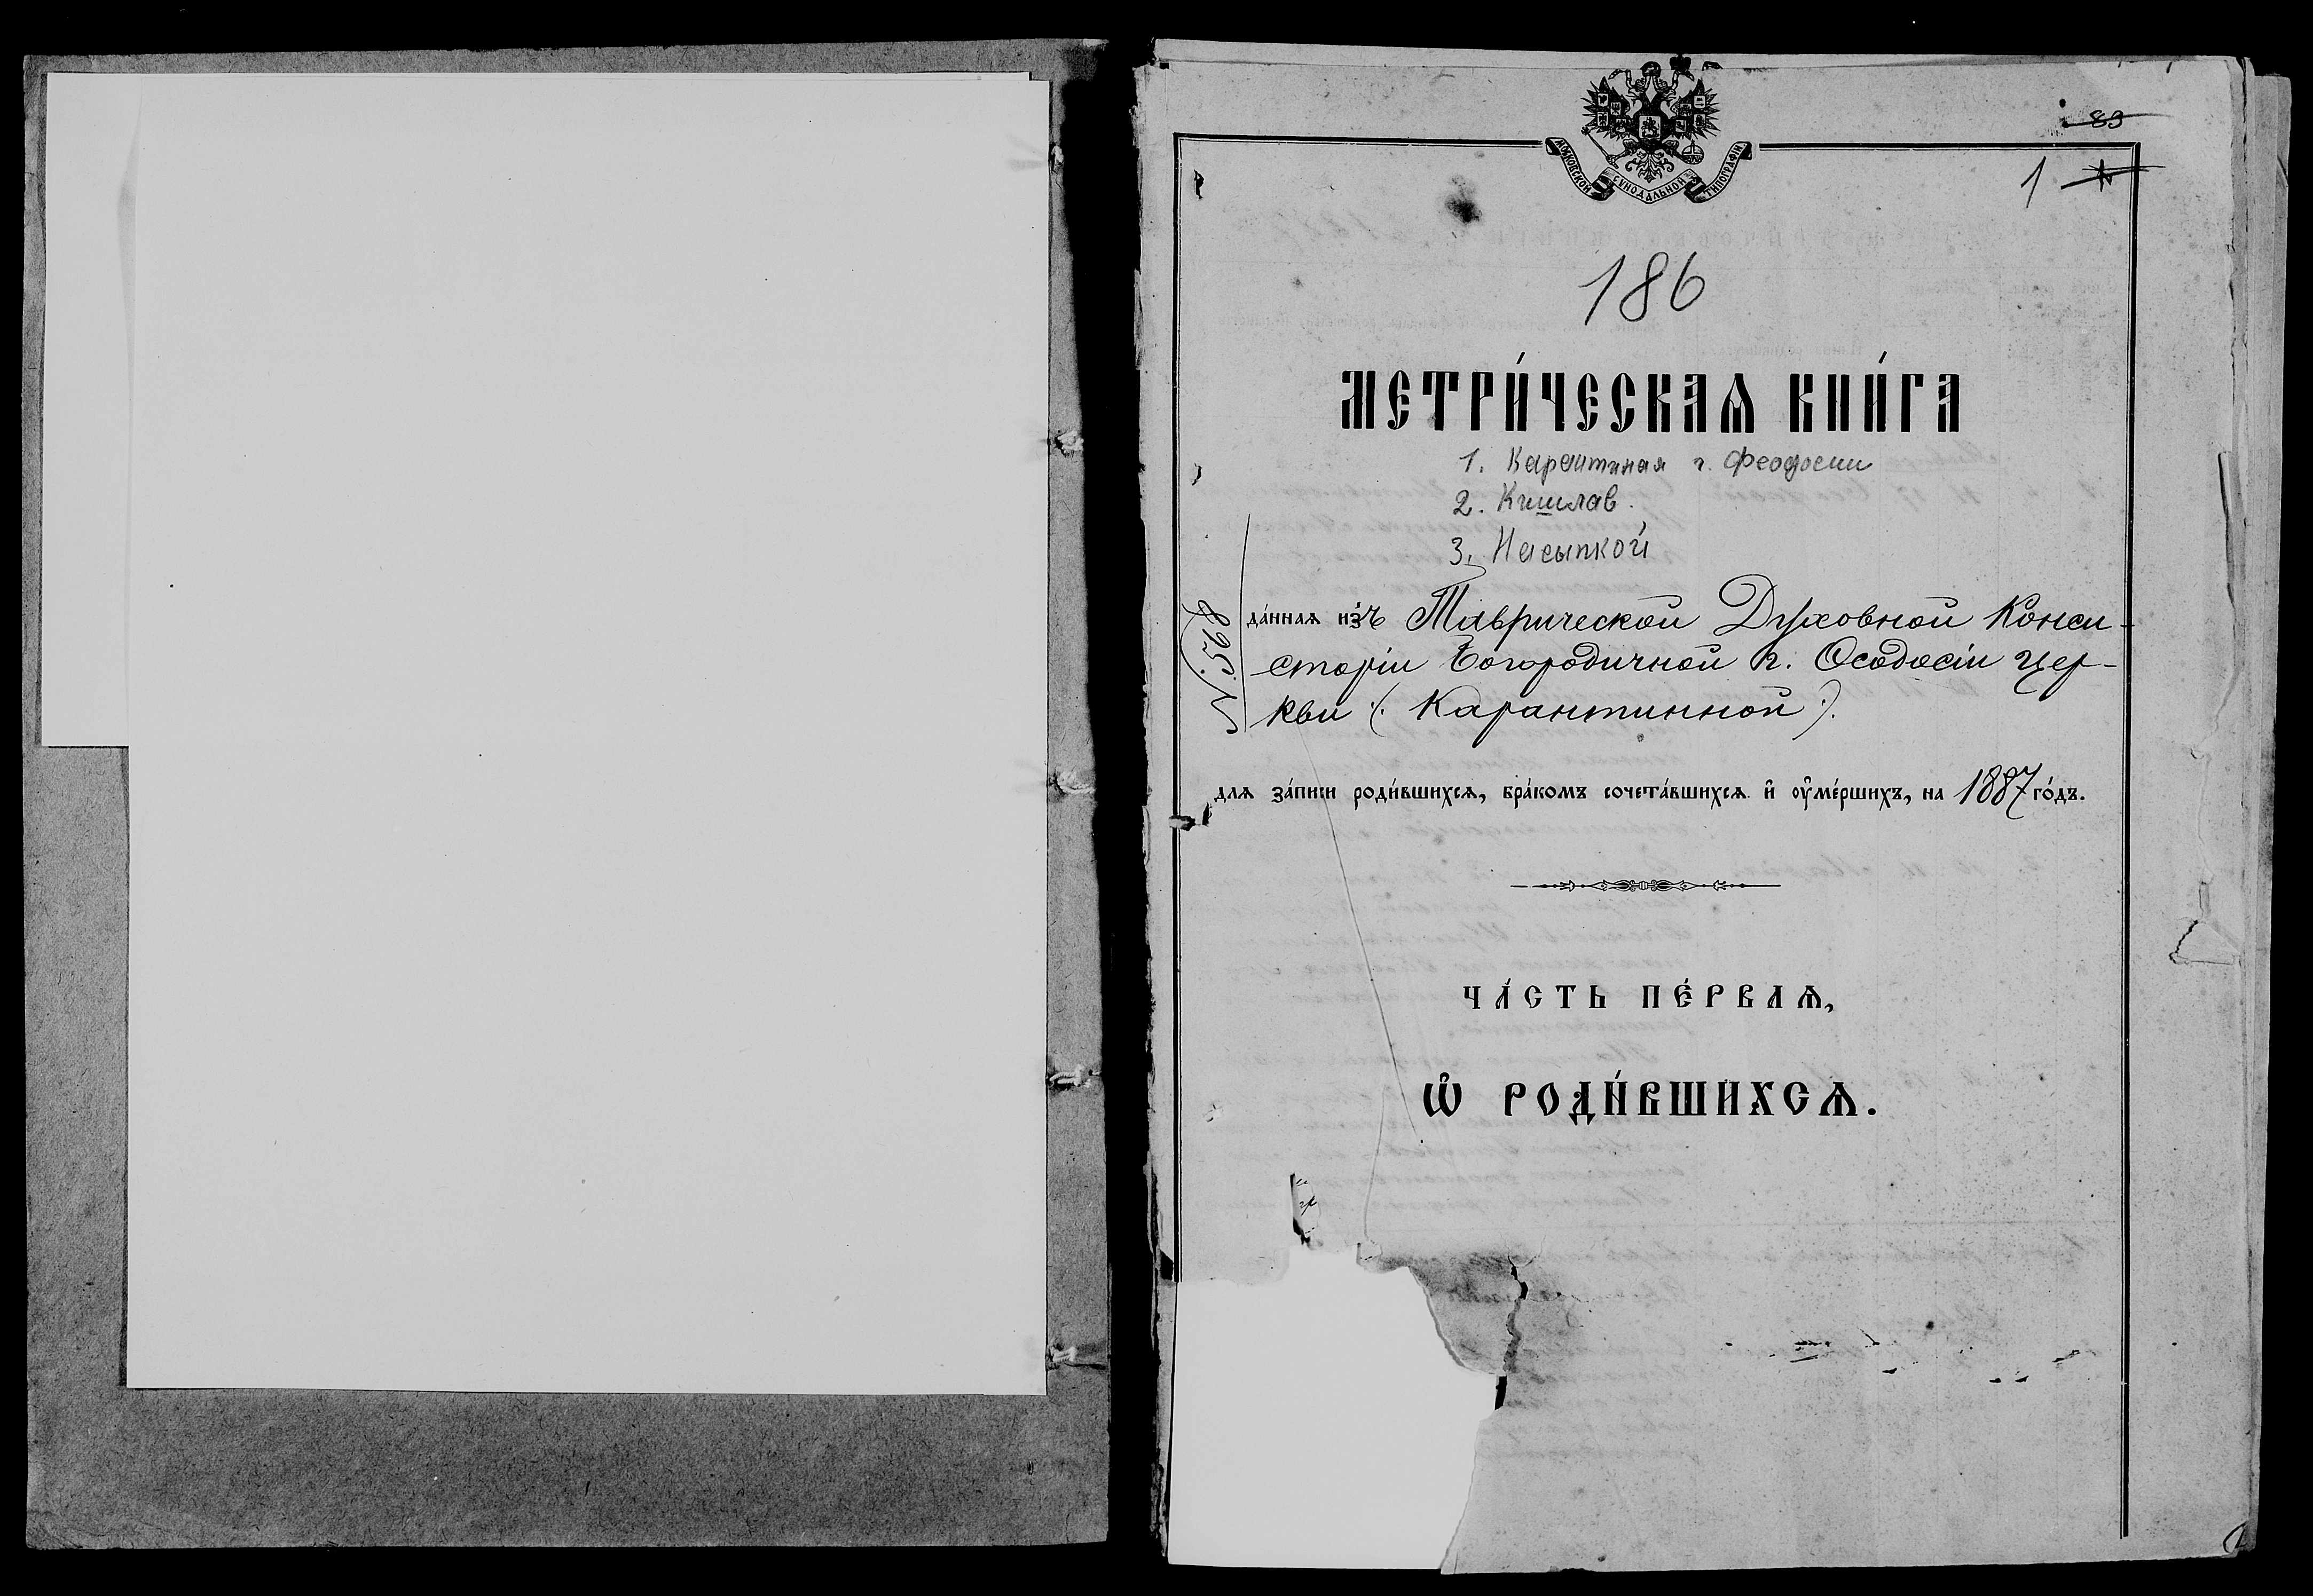 83
МОСКОВСКОЙ СѴНОДАЛЬНОЙ ТИПОГРАФІИ
1
186
МЕТРИ́ЧЕСКАѦ КНИ́ГА
1. Карантиная г. Феодосии
2. Кишлав.
3. Насыпкой
да́ннаѧ из̾ъ Таврической Духовной Конси-
сторіи Богородичной г. Ѳеодосіи цер-
кви (Карантинной).
для за́писи роди́вшихсѧ, бра́комъ сочета́вшихсѧ и҆ ᲂу҆ме́ршихъ, на 1887 го́дъ.
ЧА́СТЬ ПЕ́РВАѦ,
Ѡ҆ РОДИ́ВШИХСѦ.